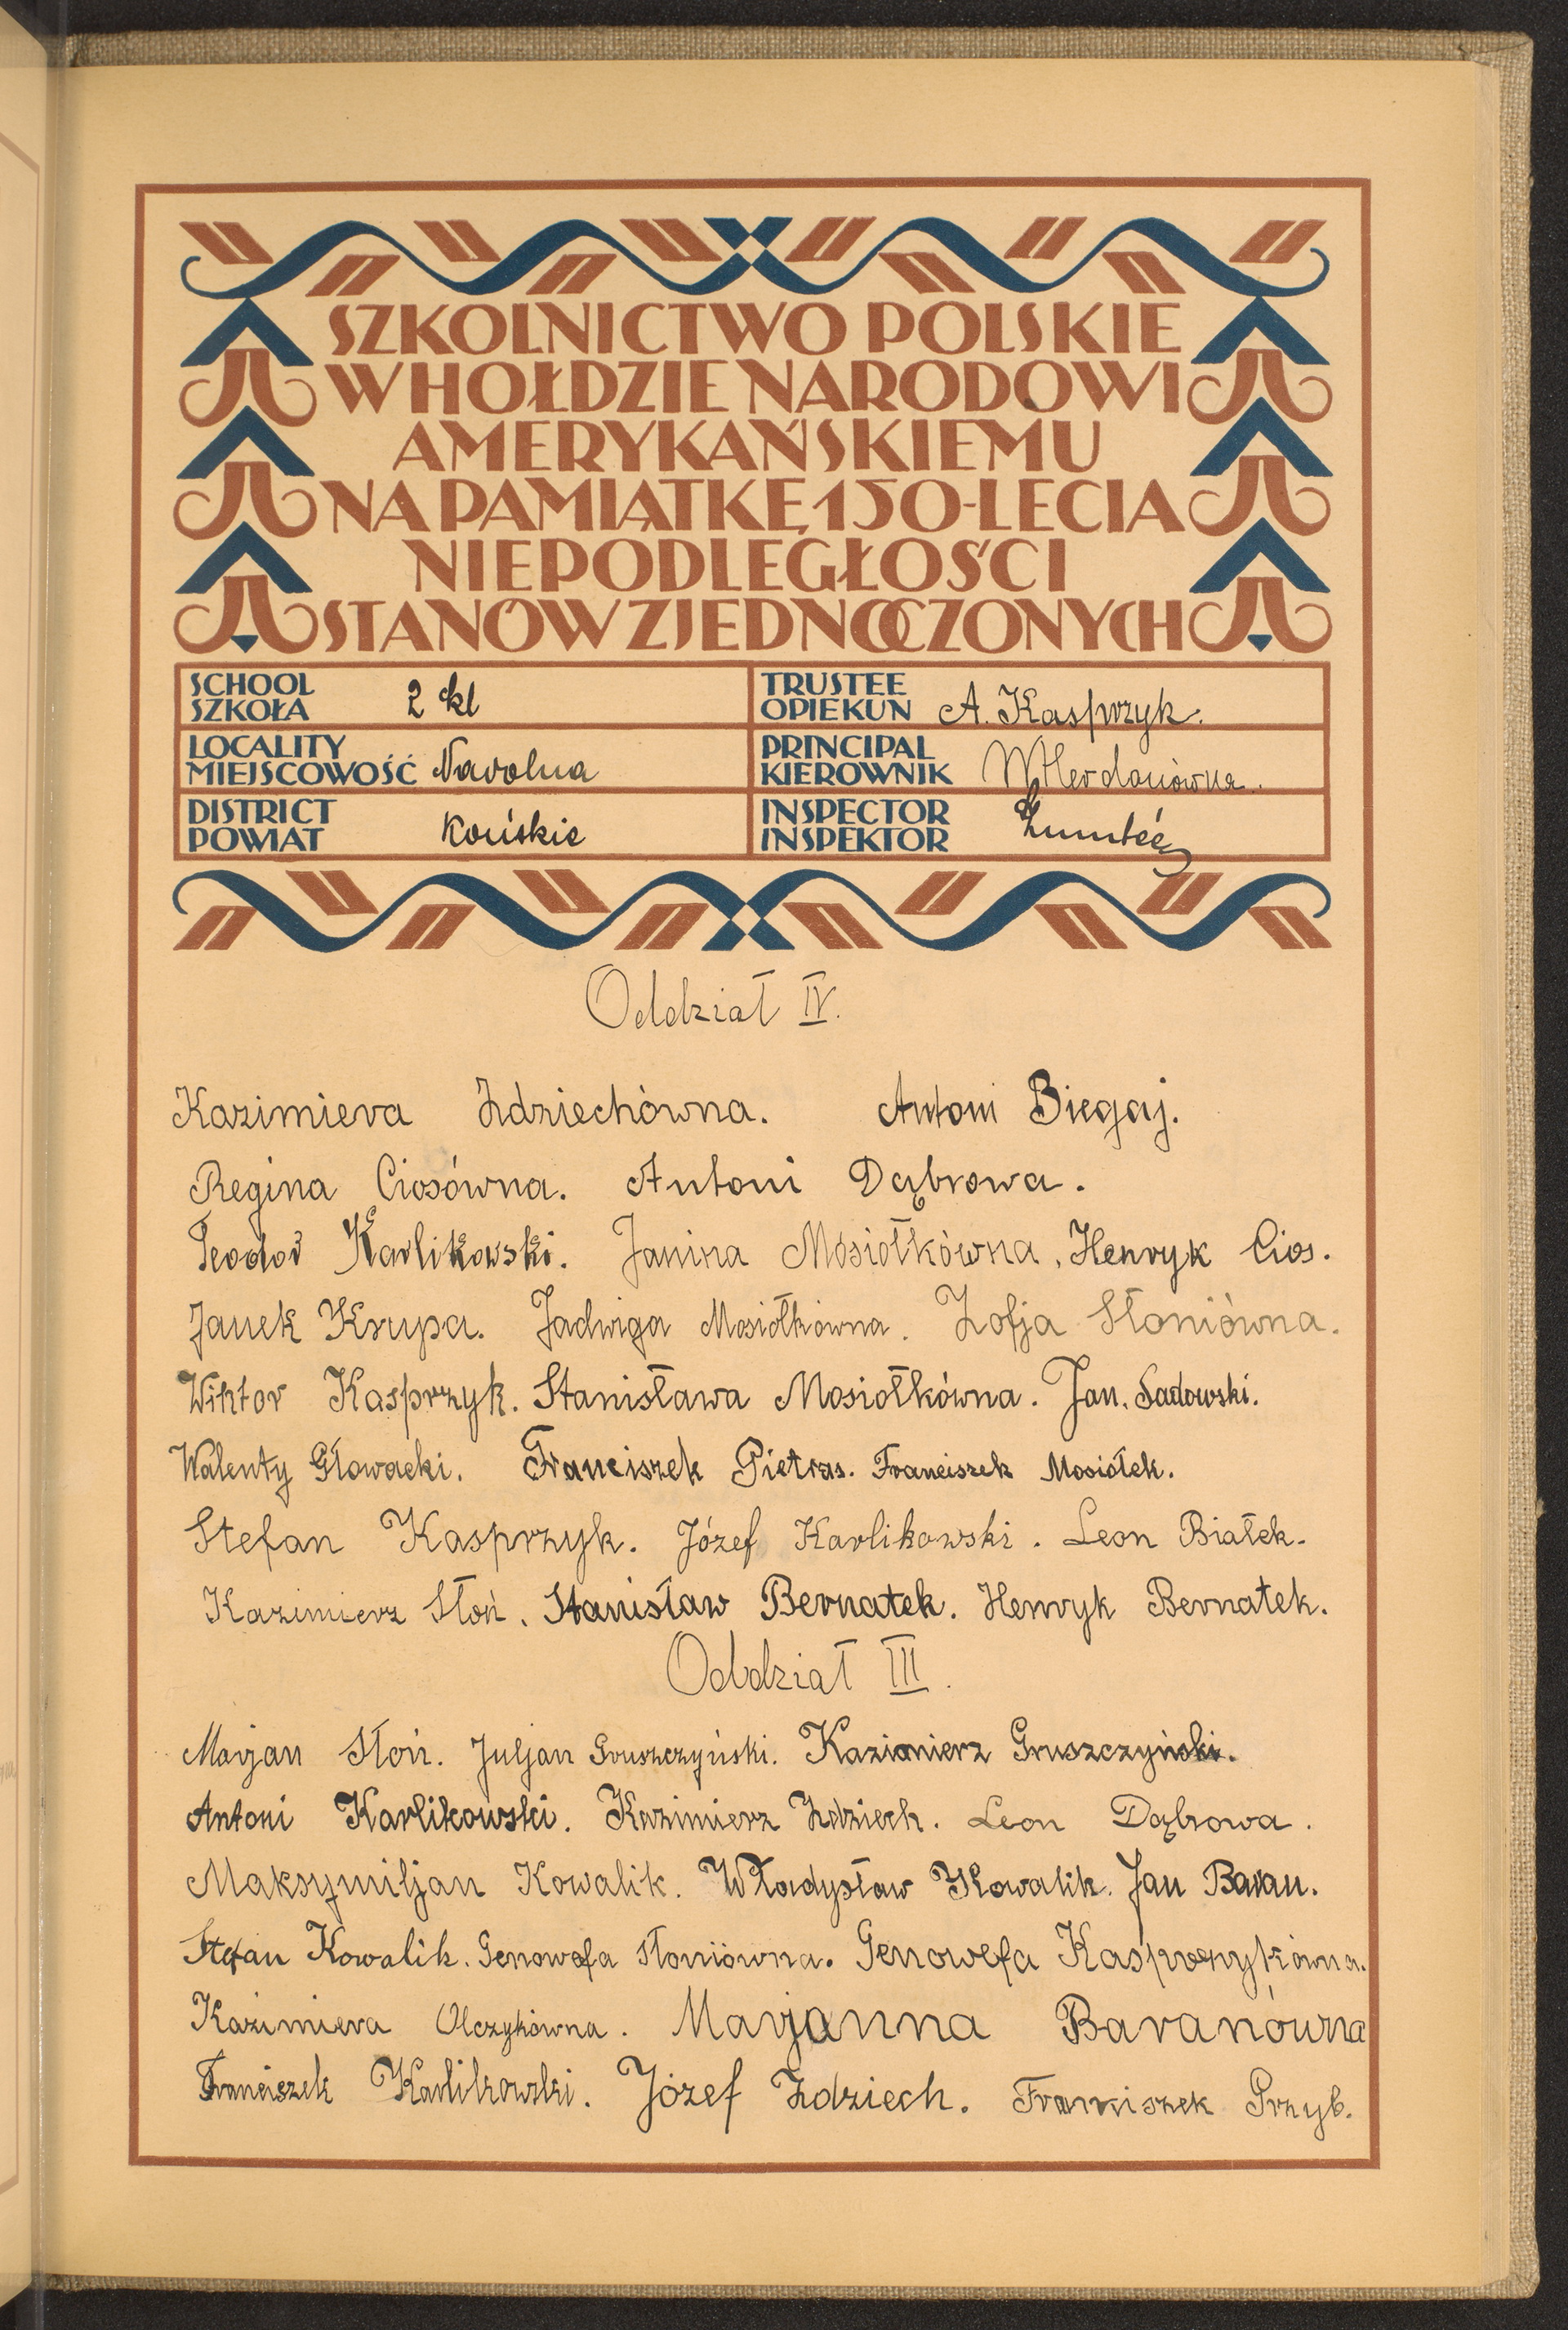 SZKOLNICTWO POLSKIE
W HOŁDZIE NARODOWI
AMERYKAŃSKIEMU
NA PAMIĄTKĘ 150-LECIA
NIEPODLEGŁOŚCI
STANÓW ZJEDNOCZONYCH
SCHOOL
SZKOŁA 2 kl
TRUSTEE
OPIEKUN A. Kasprzyk.
LOCALITY
MIEJSCOWOŚĆ Narolna
PRINCIPAL
KIEROWNIK
DISTRICT
POWIAT Końskie
INSPECTOR
INSPEKTOR
Oddział IV.
Kazimiera Zdziechówna. Antoni Biegaj.
Regina Ciosówna. Antoni Dąbrowa.
Teodor Karlikowski. Janina Mosiołkówna, Henryk Cios.
Janek Krupa. Jadwiga Mosiołkówna. Zofja Słoniówna.
Wiktor Kasprzyk. Stanisława Mosiołkówna. Jan. Sadowski.
Walenty Głowacki. Franciszek Pietras. Franciszek Mosiołek.
Stefan Kasprzyk. Józef Karlikowski. Leon Białek.
Kazimierz Słoń. Stanisław Bernatek. Henryk Bernatek.
Oddział III.
Marjan Słoń. Juljan Gruszczyński. Kazimierz Gruszczyński.
Antoni Karlikowski. Kazimierz Zdziech. Leon Dąbrowa.
Maksymiljan Kowalik. Władysław Kowalik. Jan Baran.
Stefan Kowalik. Genowefa Słoniówna. Genowefa Kasprzykówna.
Kazimiera Olczykówna. Marjanna Baranówna
Franciszek Karlikowski. Józef Zdziech. Franciszek Przyb.